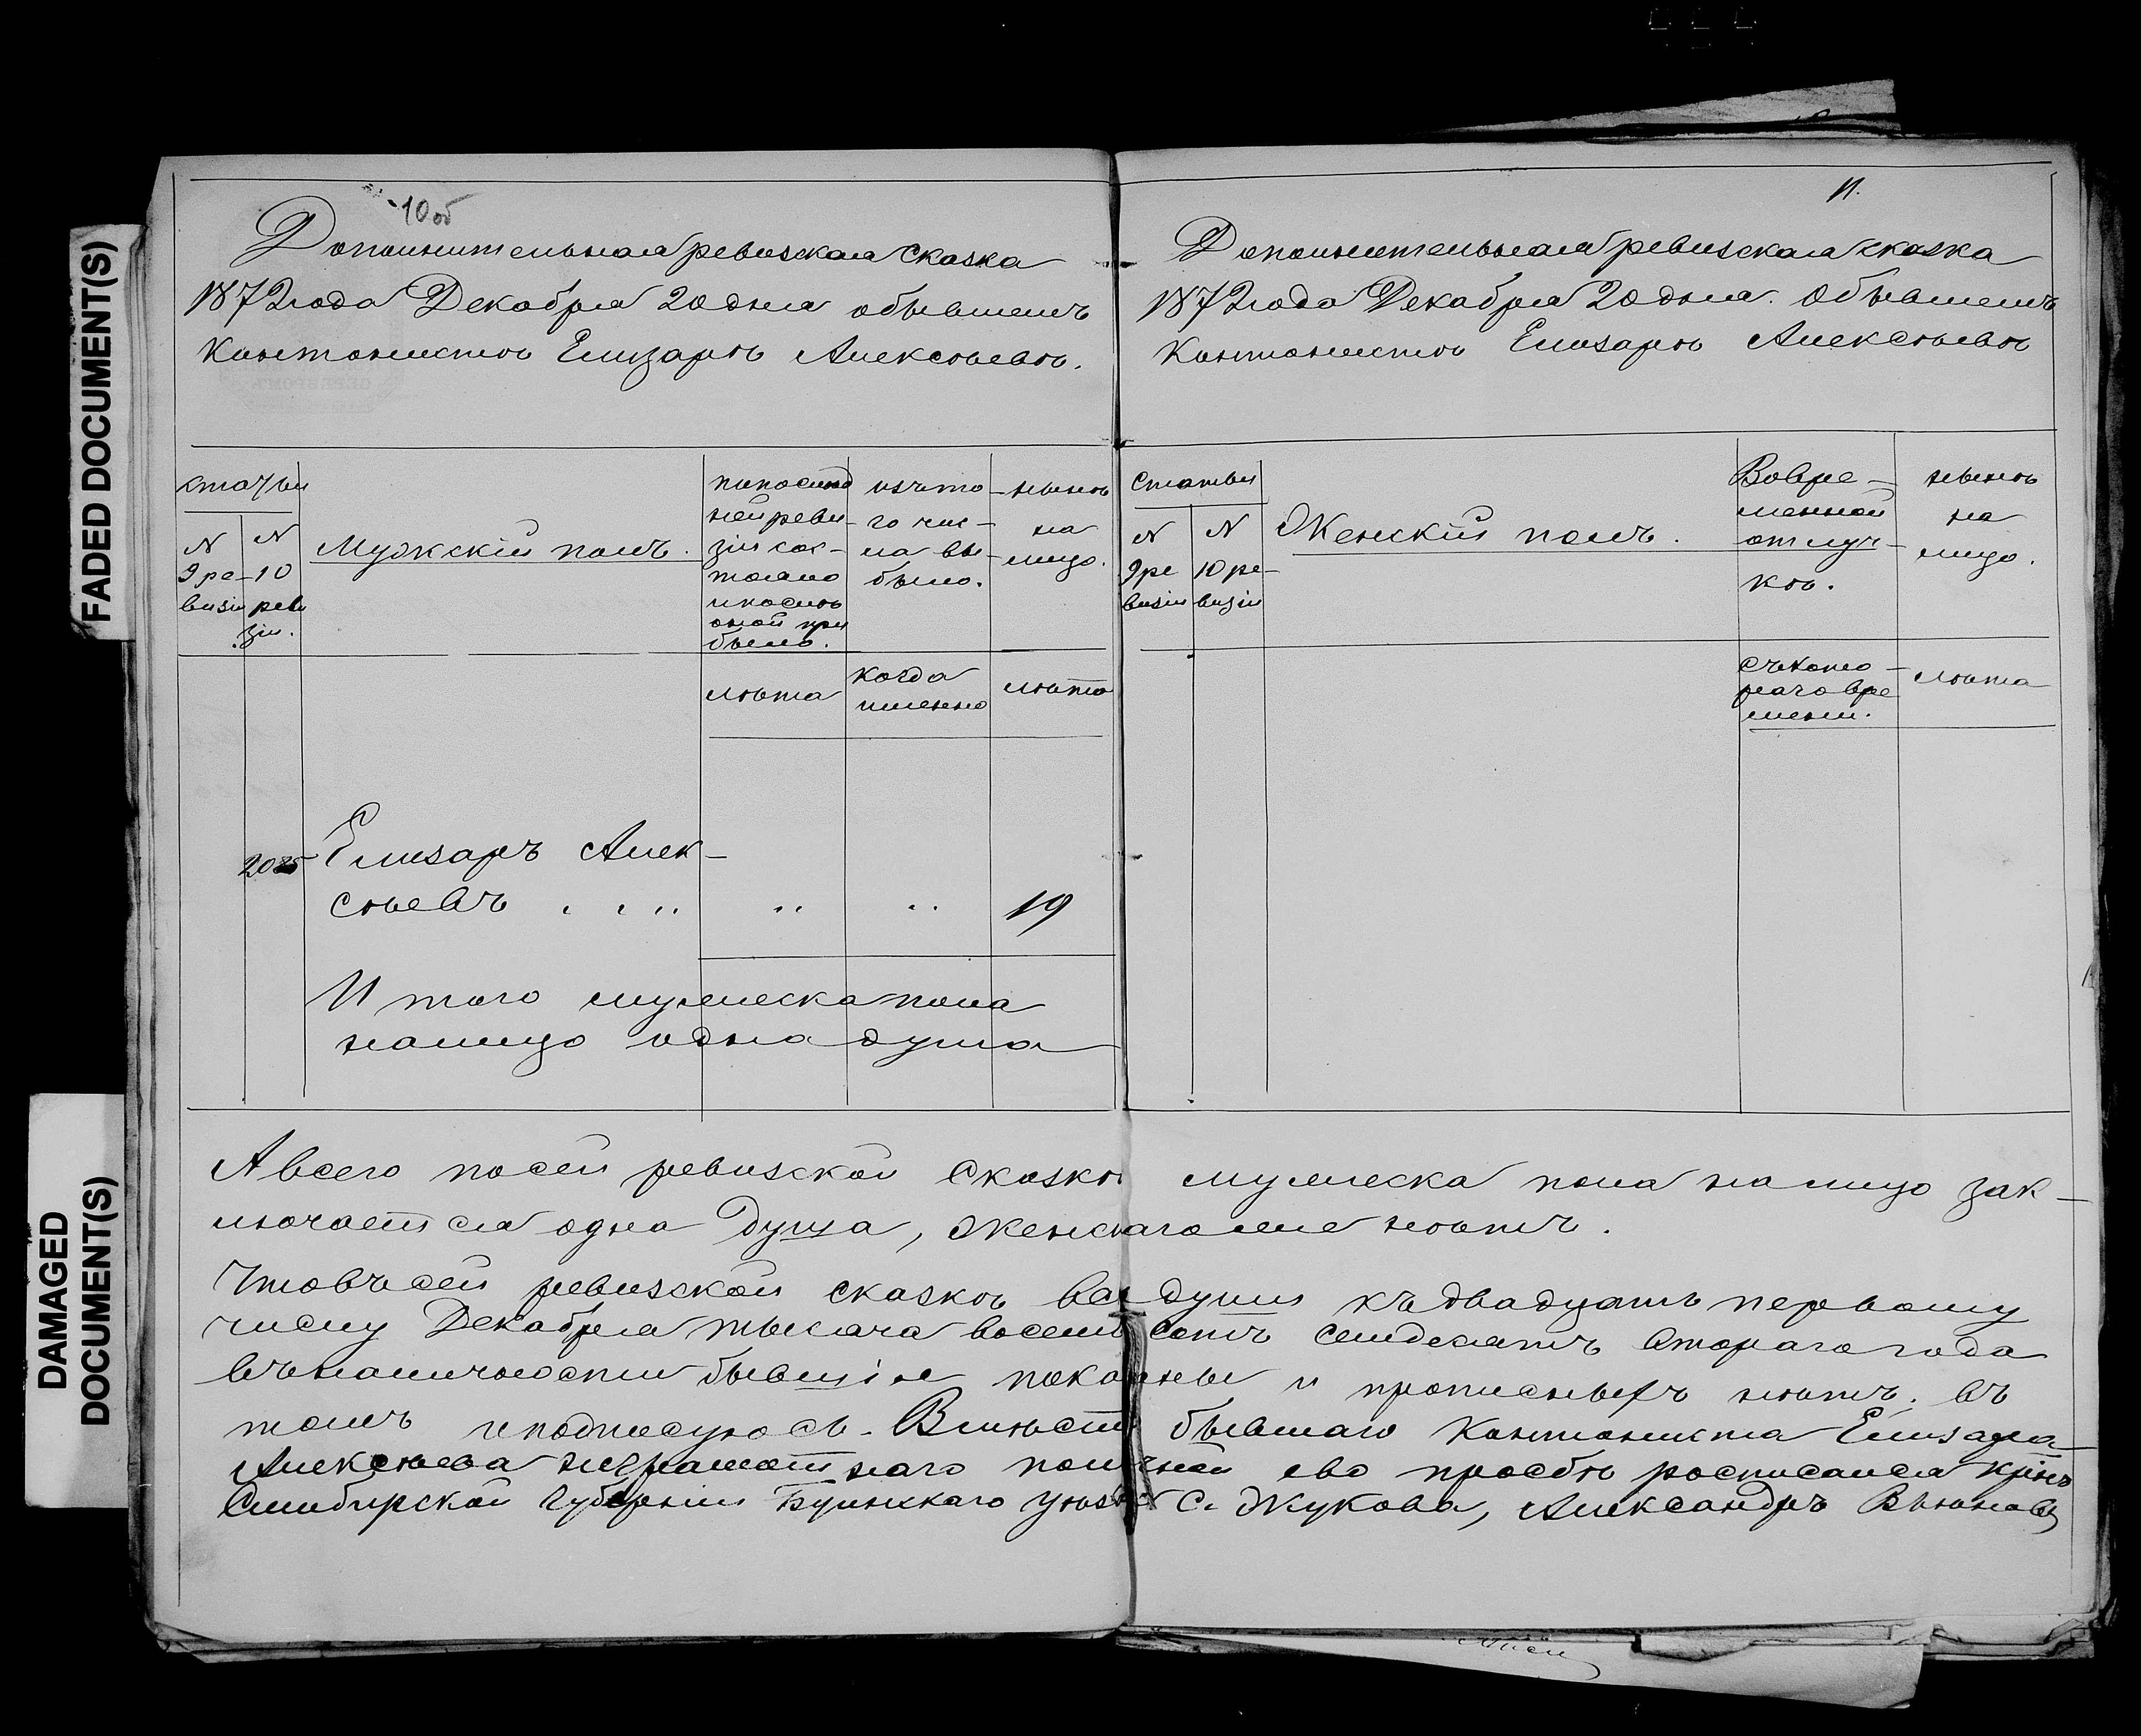 FADED DOCUMENT(S)
DAMAGED
DOCUMENT(S)
10 об
Дополнительная ревизская сказка
1872 года Декабря 20 дня объившемъ
Кантонистѣ Елизарѣ Алексѣевѣ.
статьи
N
9 ре-
визіи
N
10
реви
зіи.
Мужскій полъ.
по послѣд
ней реви-
зіи сос-
тояло
и послѣ
оной при
было.
изъ то-
го чис-
ла вы-
было.
нынѣ
на
лицо.
лѣта
когда
именно
лѣта
2085
Елизаръ Алек-
сѣевъ . . . .. .. .. 19
Итого мужеска пола
налицо одна душа
11.
Дополнительная ревизская сказка
1872 года Декабря 20 дня. Объившемъ
Кантонистѣ Елизарѣ Алексѣевѣ
Статьи
N
9 ре
визіи
N
10 ре-
визіи
Женскій полъ.
Во вре-
менной
отлуч-
кѣ.
нынѣ
на
лицо.
съ кото-
раго вре
мени.
лѣта
А всего по сей ревизской сказкѣ мужеска пола на лицо зак-
лючается одна душа, женскаго же нѣтъ.
Что въ сей ревизской сказкѣ все души къ двадцать первому
числу Декабря тысяча восемь сотъ семдесятъ втораго года
въ наличности бывшія показаны и прописныхъ нѣтъ. въ
томъ и подписуюсь. Вмѣсто бывшаго Кантониста Елизара
Алексѣева неграмотнаго по личной ево просьбѣ росписался крѣнъ
Симбирской Губерніи Буинскаго Уѣзда С. Жукова, Александръ Вьюновъ